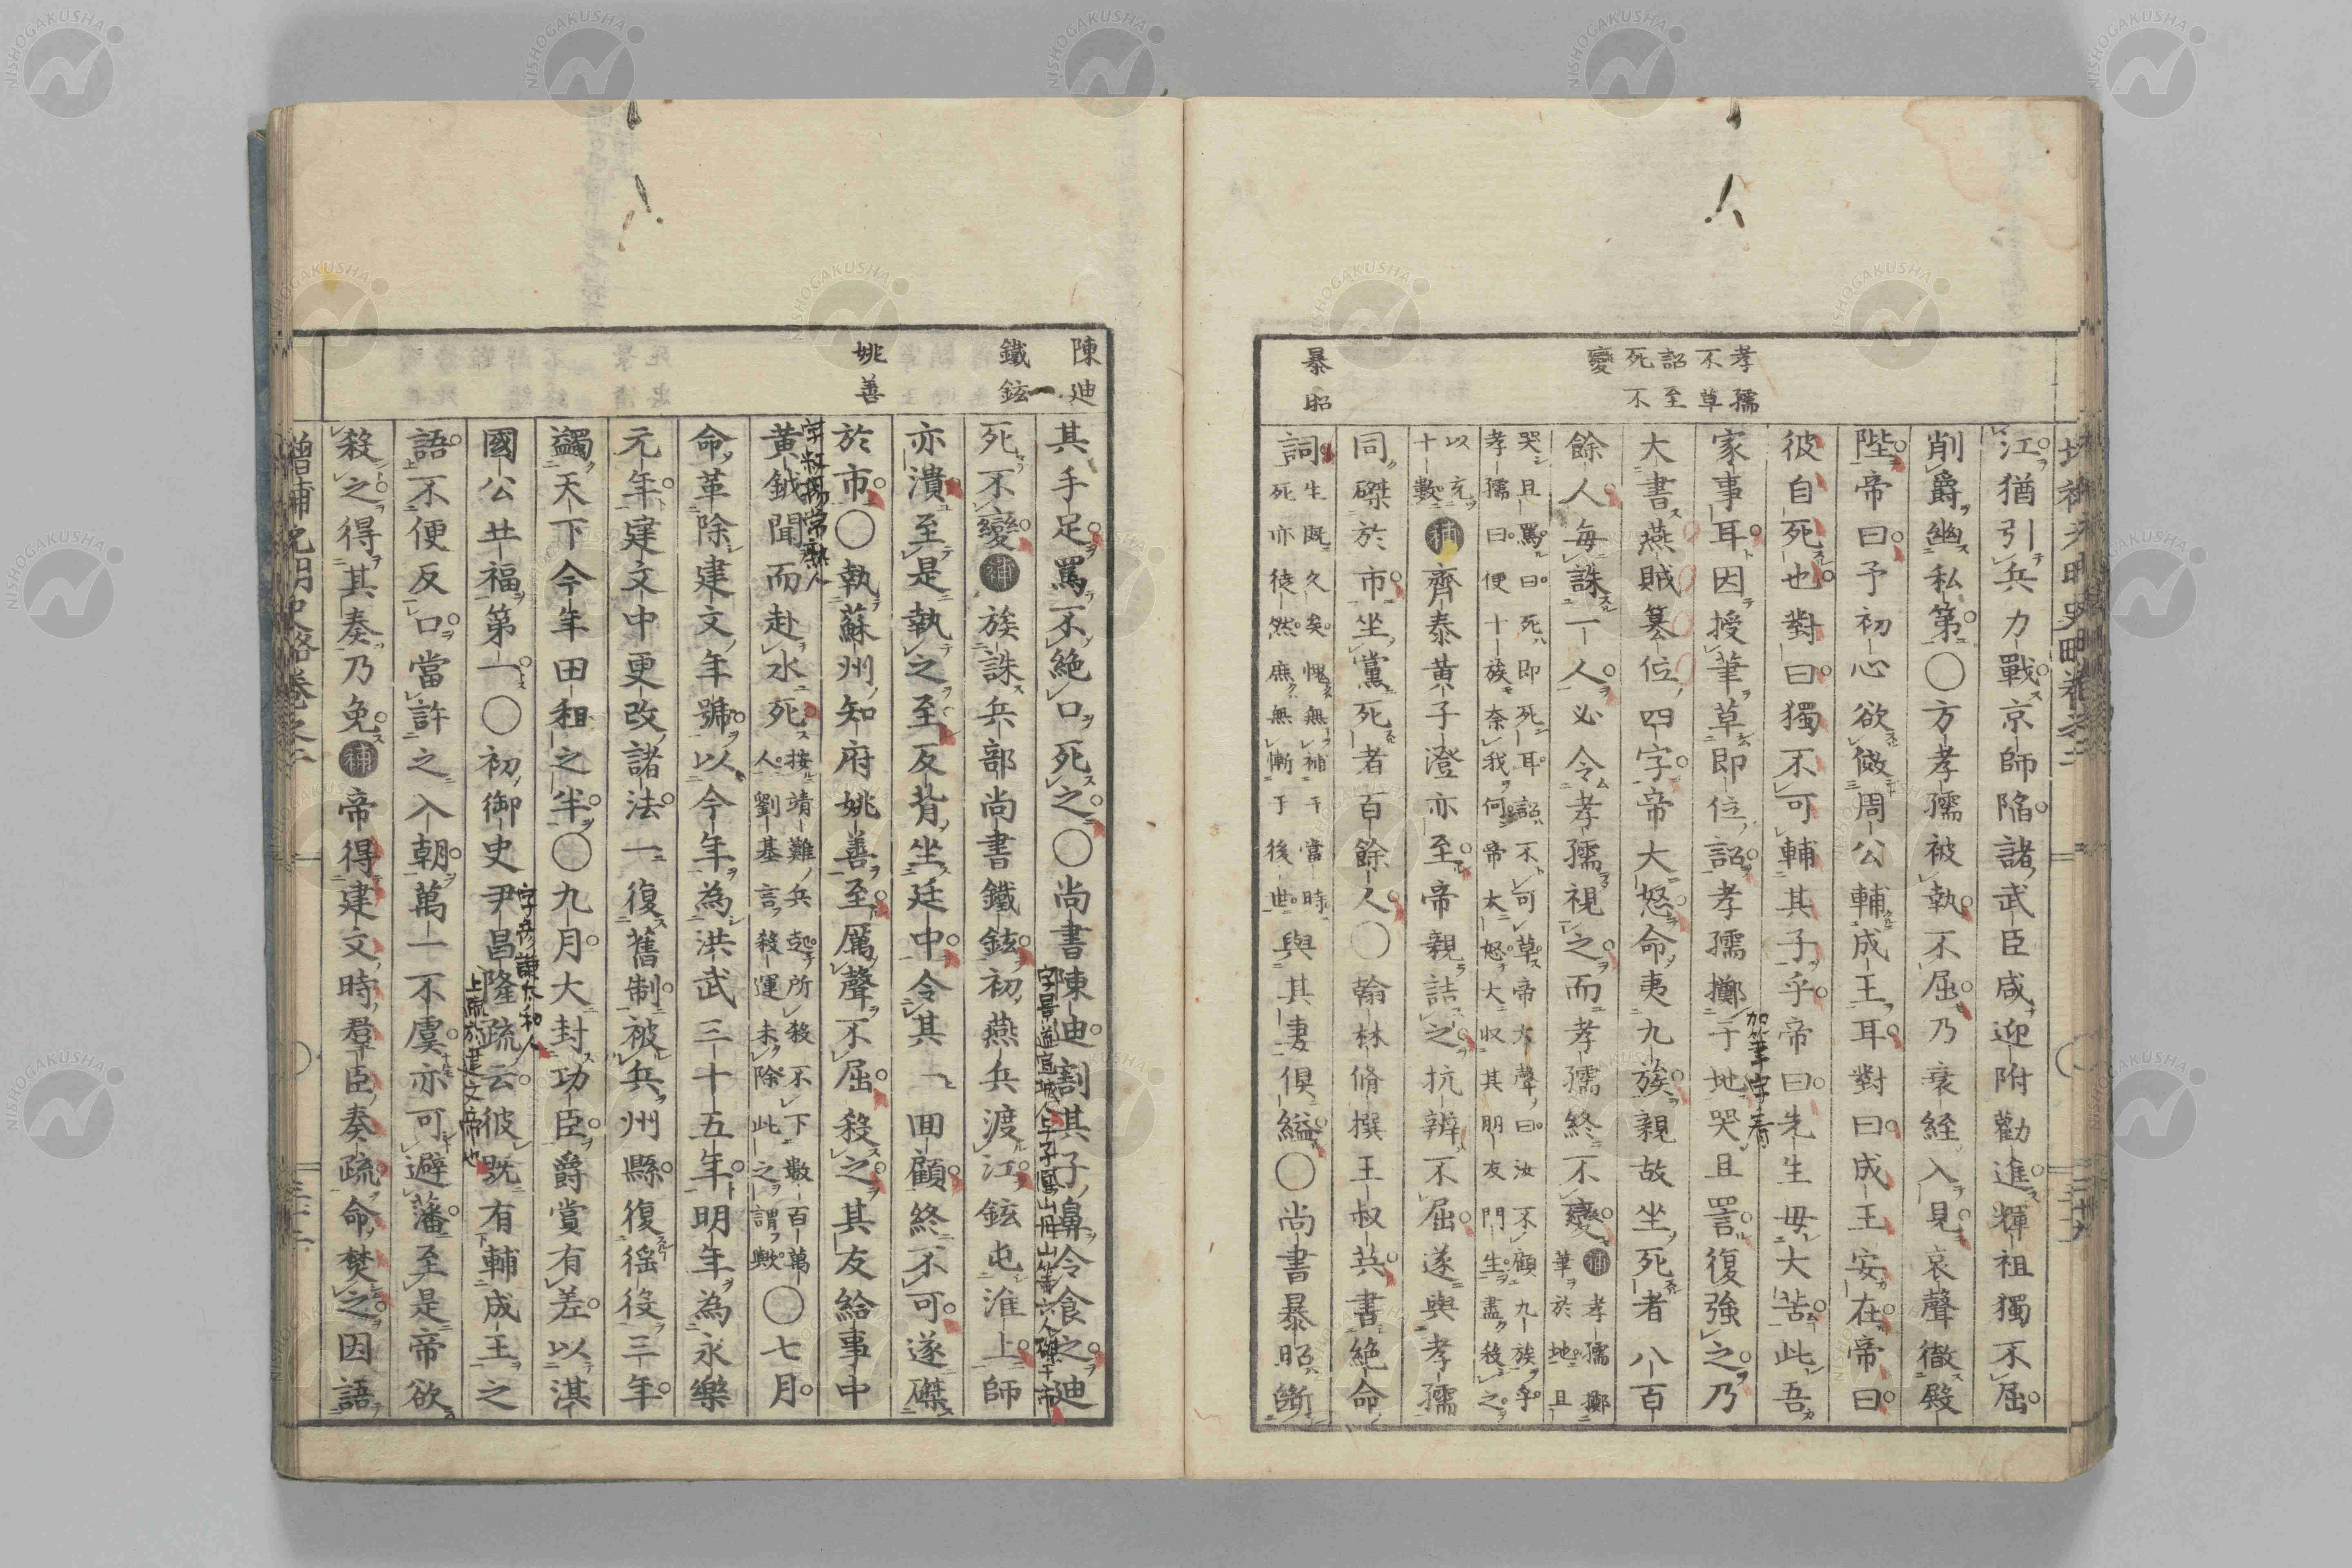 孝孺
不草
詔至
死不
變
暴昭
江猶引兵力戰京師陷諸武臣咸迎附勸進輝祖獨不屈
削爵幽私第○方孝孺被執不屈乃衰絰入見哀聲徹殿
陛帝曰予初心欲傚周公輔成王耳對曰成王安在帝曰
彼自死也對曰獨不可輔其子乎帝曰先生毋大苦此吾
家事耳因授筆草即位詔孝孺擲于地哭且詈復強之乃
加筆字看
大書燕賊篡位四字帝大怒命夷九族親故坐死者八百
餘人每誅一人必令孝孺視之而孝孺終不變補孝孺擲
筆於地且
哭且罵曰死即死耳詔不可草帝大聲曰汝不顧九族乎
孝孺曰便十族奈我何帝大怒大收其朋友門生盡殺之
以充
十數補齊泰黃子澄亦至帝親詰之抗辨不屈遂與孝孺
同磔於市坐黨死者百餘人○翰林脩撰王叔英書絶命
詞生既久矣愧無補于當時
死亦徒然庶無慚于後世與其妻俱縊○尚書暴昭斷
陳迪
鐵鉉
姚善
其手足罵不絕口死之○尚書陳迪割其子鼻令食之迪
死不變補族誅兵部尚書鐵鉉初燕兵渡江鉉屯淮上師
亦潰至是執之至反背坐廷中令其一回顧終不可遂磔
於市○執蘇州知府姚善至厲聲不屈殺之其友給事中
黃鉞聞而赴水死按靖難兵起所殺不下數百萬
人劉基言殺運未除此之謂歟○七月
命革除建文年號以今年為洪武三十五年明年為永樂
元年建文中更改諸法一復舊制被兵州縣復徭役三年
蠲天下今年田租之半○九月大封功臣爵賞有差以淇
國公丘福第一○初御史尹昌隆疏云彼既有輔成王之
上疏於建文帝也
語不便反口當許之入朝萬一不虞亦可避藩至是帝欲
殺之得其奏乃免補帝得建文時群臣奏疏命焚之因語
增補元明史略卷之二